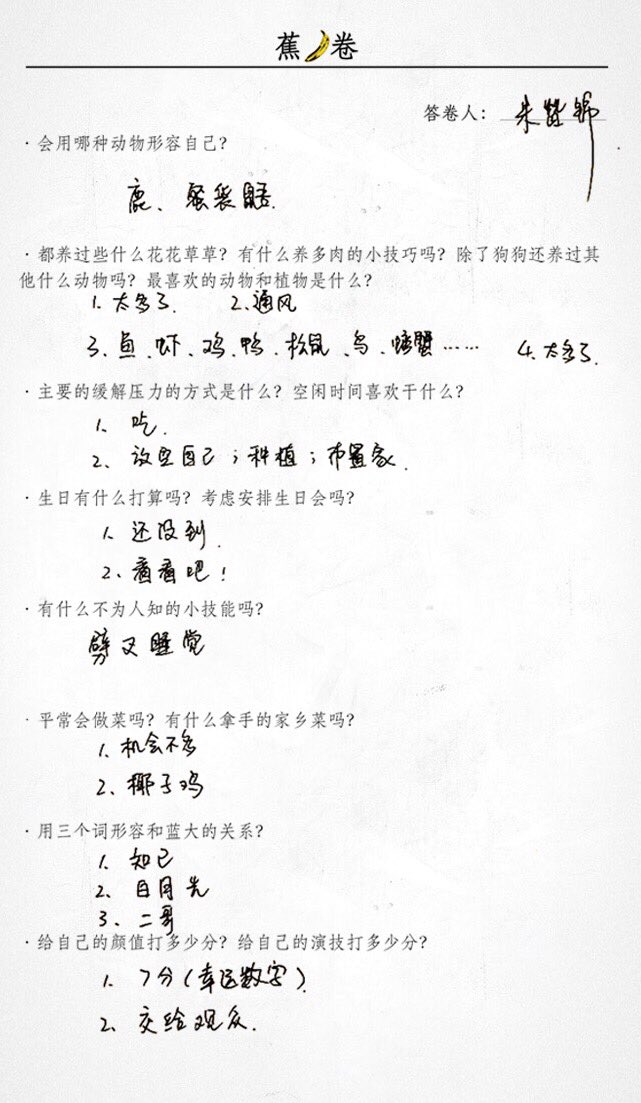 蕉卷
答卷人：朱赞锦
·会用哪种动物形容自己？
鹿、蜜袋鼯.
·都养过些什么花花草草？有什么养多肉的小技巧吗？除了狗狗还养过其
他什么动物吗？最喜欢的动物和植物是什么？
1. 太多了. 2. 通风
3. 鱼、虾、鸡、鸭、松鼠、鸟、螃蟹…… 4. 太多了.
·主要的缓解压力的方式是什么？空闲时间喜欢干什么？
1. 吃.
2. 放空自己；种植；布置家.
·生日有什么打算吗？考虑安排生日会吗？
1. 还没到.
2. 看看吧！
·有什么不为人知的小技能吗？
劈叉睡觉
·平常会做菜吗？有什么拿手的家乡菜吗？
1. 机会不多
2. 椰子鸡
·用三个词形容和蓝大的关系？
1. 知己
2. 白月光
3. 二哥
·给自己的颜值打多少分？给自己的演技打多少分？
1. 7分(幸运数字)
2. 交给观众.